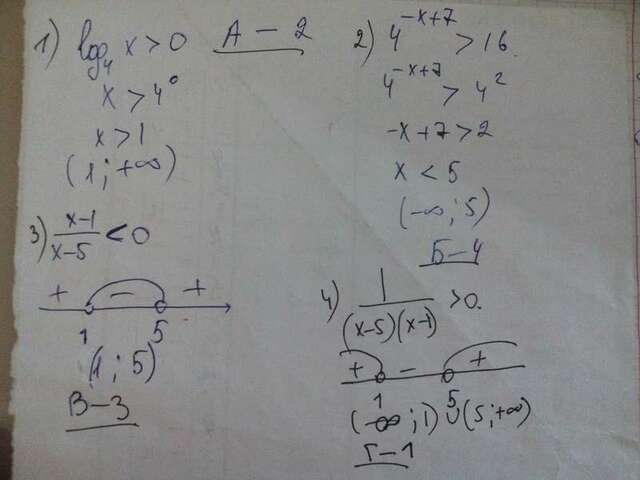 1) log₄ x > 0 A - 2
x > 4⁰
x > 1
(1; +∞)
2) 4^(-x+7) > 16.
4^(-x+7) > 4²
-x+7 > 2
x < 5
(-∞; 5)
Б - 4
3) (x-1)/(x-5) < 0
+ - +
1 5
(1; 5)
В - 3
4) 1/((x-5)(x-1)) > 0.
+ - +
1 5
(-∞; 1) ∪ (5; +∞)
Г - 1